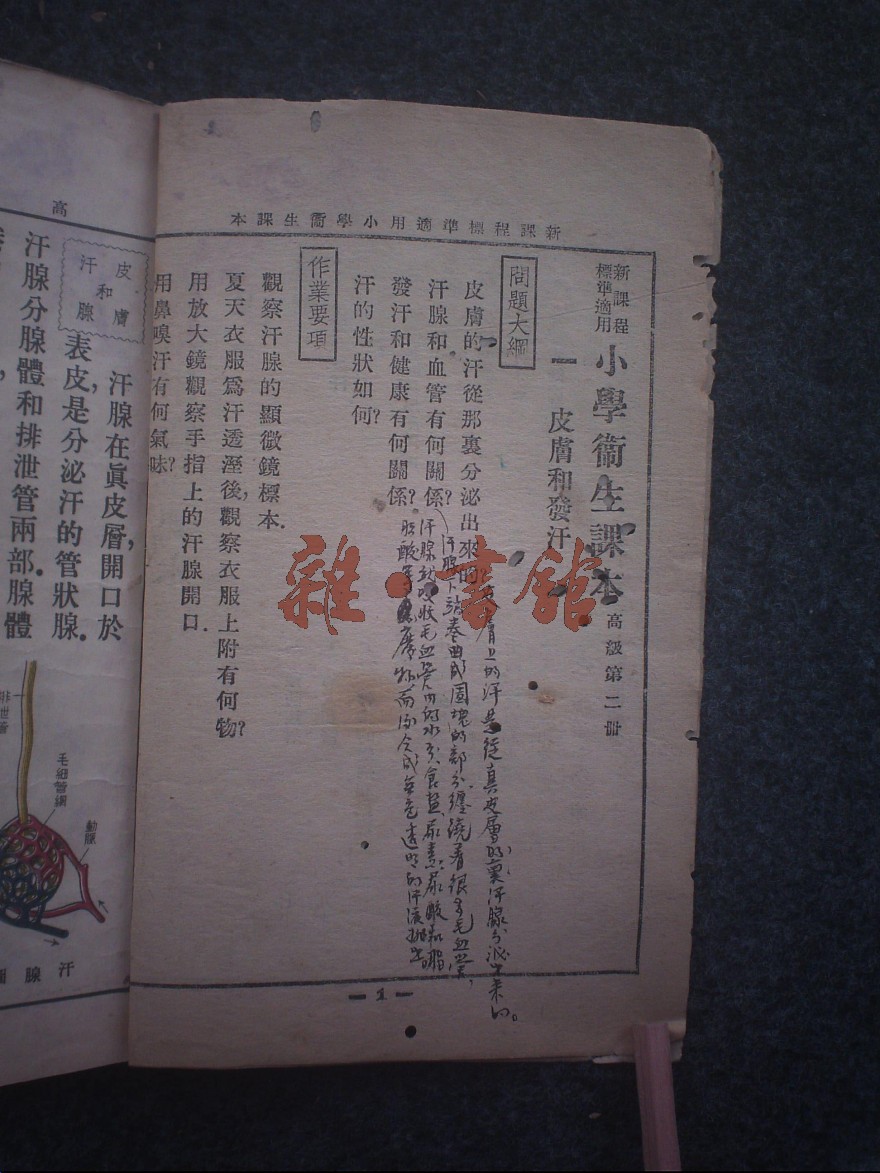 新課程標準適用小學衞生課本
新課程
標準適用
小學衞生課本
高級第二册
一 皮膚和發汗
問題大綱
皮膚的汗從那裏分泌出來的?
汗腺和血管有何關係?
發汗和健康有何關係?
汗的性狀如何?
皮膚上的汗是從真皮層的裏汗腺分泌出來的。
汗腺下端卷曲成團塊的部分纏繞着很多毛血管,
汗腺就吸收毛血管內的水分、食鹽、尿素、尿酸和脂
肪酸等廢物而
透明的汗液
作業要項
觀察汗腺的顯微鏡標本.
夏天衣服爲汗透溼後,觀察衣服上附有何物?
用放大鏡觀察手指上的汗腺開口.
用鼻嗅汗有何氣味?
— 1 —
雜·書館
高
皮膚
和
汗腺
汗腺在眞皮層,開口於
表皮,是分泌汗的管狀腺.
汗腺分腺體和排泄管兩部.腺體
排泄管
毛細管網
動脈
汗腺